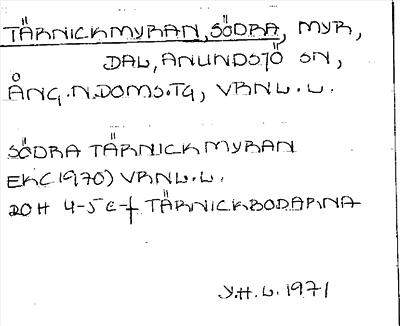 TÄRNICKMYRAN, SÖDRA, MYR,
DAL, ANUNDSJÖ SN,
ÅNG.N.DOMS.TG, VBNL.L.
SÖDRA TÄRNICKMYRAN
EK(1970) VBNL.L.
20H 4-5 e-f TÄRNICKBODARNA
Y.H.L. 1971